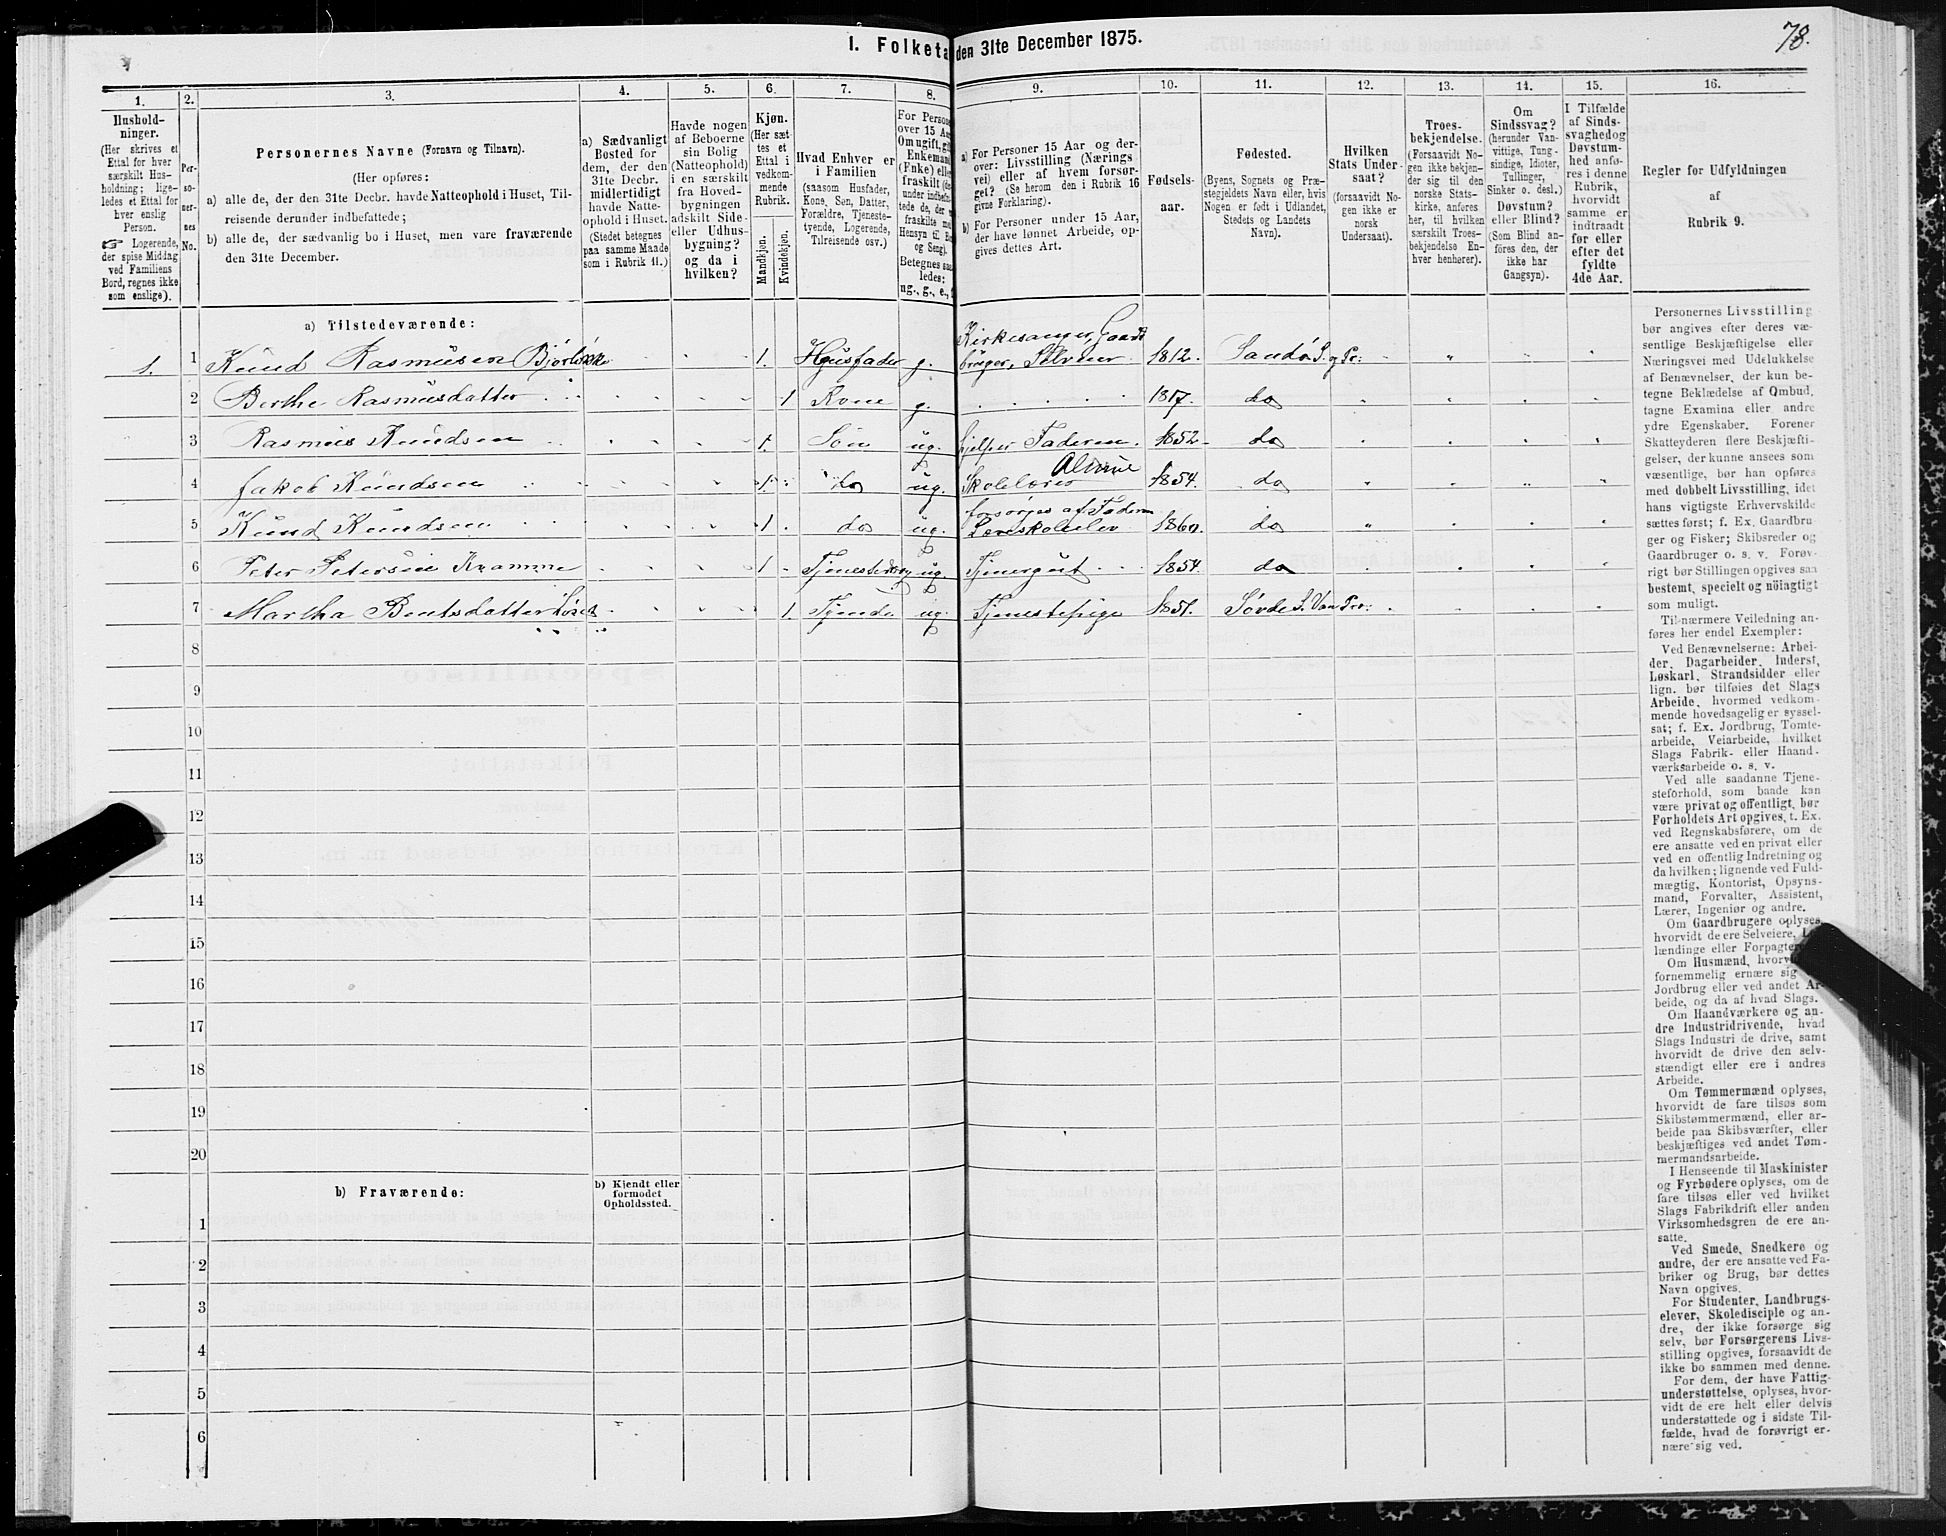 78.
1. Folketa
den 31te December 1875.
1.
2.
3.
4.
5.
6.
7.
8.
9.
10.
11.
12.
13.
14.
15.
16.
Hushold-
ninger.
(Her skrives et
Ettal for hver
særskilt Hus-
holdning; lige-
ledes et Ettal for
hver enslig
Person.
☞ Logerende,
der spise Middag
ved Familiens
Bord, regnes ikke
som enslige).
Per-
so-
ner-
nes
No.
Personernes Navne (Fornavn og Tilnavn).
(Her opføres:
a) alle de, der den 31te Decbr. havde Natteophold i Huset, Til-
reisende derunder indbefattede;
b) alle de, der sædvanlig bo i Huset, men vare fraværende
den 31te December.
a) Sædvanligt
Bosted for
dem, der den
31te Decbr.
midlertidigt
havde Natte-
ophold i Huset.
(Stedet betegnes
paa samme Maade
som i Rubrik 11.)
Havde nogen
af Beboerne
sin Bolig
(Natteophold)
i en særskilt
fra Hoved-
bygningen
adskilt Side-
eller Udhus-
bygning?
og da i
hvilken?
Kjøn.
(Her sæt-
tes et
Ettal i
vedkom-
mende
Rubrik.
Mandkjøn.
Kvindekjøn.
Hvad Enhver er
i Familien
(saasom Husfader,
Kone, Søn, Datter,
Forældre, Tjeneste-
tyende, Logerende,
Tilreisende osv.)
For Persone
over 15 Aa
Om ugift, gi
Enkemand
(Enke) elle
fraskilt (de
under indbefat-
tede de, der
fraskilte me
Hensyn til Bo
og Seng).
Betegnes saa
ledes:
ug., g., e.,
a) For Personer 15 Aar og der-
over: Livsstilling (Nærings
vei) eller af hvem forsør-
get? (Se herom den i Rubrik 16
givne Forklaring).
b) For Personer under 15 Aar,
der have lønnet Arbeide, op-
gives dettes Art.
Fødsels-
aar.
Fødested.
(Byens, Sognets og Præ-
stegjeldets Navn eller, hvis
Nogen er født i Udlandet,
Stedets og Landets
Navn).
Hvilken
Stats Under-
saat?
(forsaavidt No-
gen ikke er
norsk
Undersaat).
Troes-
bekjendelse.
(Forsaavidt No-
gen ikke bekjen-
der sig til den
norske Stats-
kirke, anføres
her, til hvilken
særskilt Troes-
bekjendelse En-
hver henhører).
Om
Sindssvag?
(herunder Van-
vittige, Tung-
sindige, Idioter,
Tullinger,
Sinker o. desl.)
Døvstum?
eller Blind?
(Som Blind an-
føres den, der
ikke har
Gangsyn).
I Tilfælde
af Sinds-
svaghedog
Døvstum-
hed anfø-
res i denne
Rubrik,
hvorvidt
samme er
indtraadt
før eller
efter det
fyldte
4de Aar.
Regler for Udfyldningen
af
Rubrik 9.
a) Tilstedeværende:
1. 1 Knud Rasmusen Bjørlykke 1. Husfader g. Kirkesanger, Gaard
bruger, Selveier 1812. Sandø S. og Pr:
2 Berthe Rasmusdatter 1 Kone g. 1817. do
3 Rasmus Knudsen 1. Søn ug. hjelper Faderen. 1852. do
4 Jakob Knudsen 1. do ug. Almue
Skolelærer 1854. do
5 Knud Knudsen 1. do ug. forsørges af Faderen
1860. do
6 Peter Petersen Kramme 1 ug. Tjenergut 1854. do
7 Martha Bentsdatter 1. Tyende ug. Tjenestepige 1851. Søvde S. Van Pr:
8
9
10
11
12
13
14
15
16
17
18
19
20
b) Fraværende:
b) Kjendt eller
formodet
Opholdssted.
1
2
3
4
5
6
Personernes Livsstilling
bør angives efter deres væ-
sentlige Beskjæftigelse eller
Næringsvei med Udelukkelse
af Benævnelser, der kun be-
tegne Beklædelse af Ombud,
tagne Examina eller andre
ydre Egenskaber. Forener
Skatteyderen flere Beskjæfti-
gelser, der kunne ansees som
væsentlige, bør han opføres
med dobbelt Livsstilling, idet
hans vigtigste Erhvervskilde
sættes først; f. Ex. Gaardbru-
ger og Fisker; Skibsreder og
Gaardbruger o. s. v. Forøv-
rigt bør Stillingen opgives saa
bestemt, specielt og nöiagtigt
som muligt.
Til nærmere Veiledning an-
føres her endel Exempler:
Ved Benævnelserne: Arbei-
der, Dagarbeider, Inderst,
Løskarl, Strandsidder eller
lign. bør tilføies det Slags
Arbeide, hvormed vedkom-
mende hovedsagelig er syssel-
sat; f. Ex. Jordbrug, Tomte-
arbeide, Veiarbeide, hvilket
Slags Fabrik- eller Haand-
værksarbeide o. s. v.
Ved alle saadanne Tjene-
steforhold, som baade kan
være privat og offentligt, bør
Forholdets Art opgives, t. Ex.
ved Regnskabsførere, om de
ere ansatte ved en privat eller
ved en offentlig Indretning og
da hvilken; lignende ved Fuld-
mægtig, Kontorist, Opsyns-
mand, Forvalter, Assistent,
Lærer, Ingeniør og andre.
Om Gaardbrugere oplyses,
hvorvidt de ere Selveiere,
lændinge eller Forpagtere
Om Husmænd,
fornemmelig ernære sig
Jordbrug eller ved andet Ar-
beide, og da af hvad Slags.
Om Haandværkere og an-
dre Industridrivende, hvad
Slags Industri de drive, samt
hvorvidt de drive den selv-
stændigt eller ere i andres
Arbeide.
Om Tømmermænd oplyses,
hvorvidt de fare tilsøs som
Skibstømmermænd, eller ar-
beide paa Skibsværfter, eller
beskjæftiges ved andet Tøm-
mermandsarbeide.
I Henseende til Maskinister
og Fyrbødere oplyses, om de
fare tilsøs eller ved hvilket
Slags Fabrikdrift eller anden
Virksomhedsgren de ere an-
satte.
Ved Smede, Snedkere og
andre, der ere ansatte ved Fa-
briker og Brug, bør dettes
Navn opgives.
For Studenter, Landbrugs-
elever, Skoledisciple og an-
dre, der ikke forsørge sig
selv, bør Forsørgerens Livs-
stilling opgives, forsaavidt de
ikke bo sammen med denne.
For dem, der have Fattig-
understøttelse, oplyses, hvor-
vidt de ere helt eller delvis
understøttede og i sidste Til-
fælde, hvad de forøvrigt er-
nære sig ved.